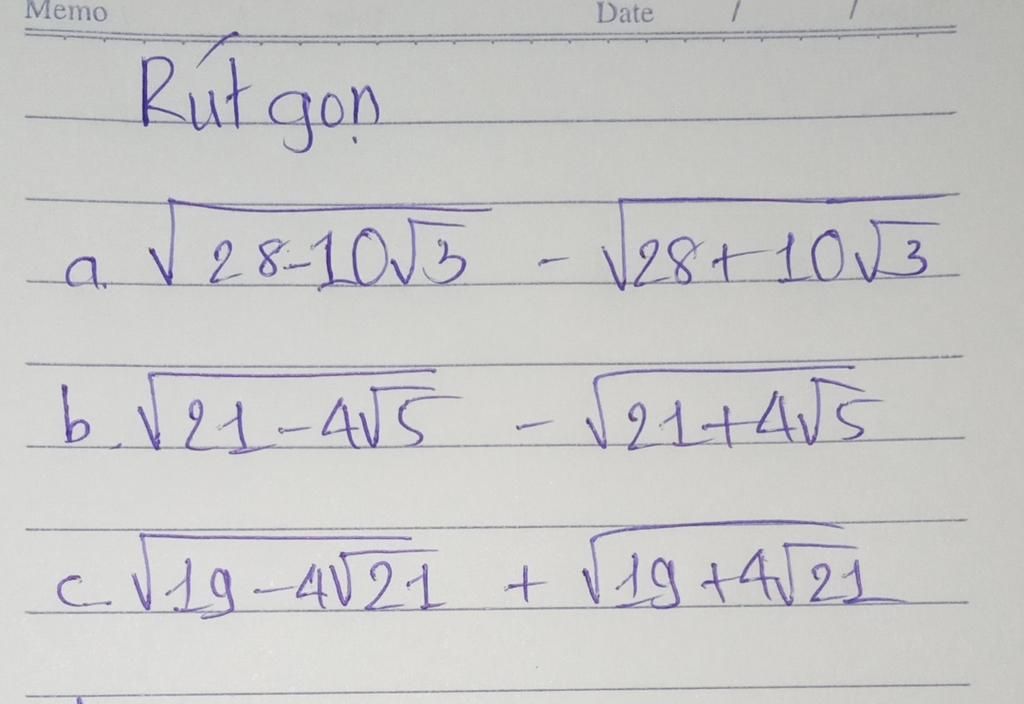 Memo Date / /
Rút gọn
a. √(28-10√3) - √(28+10√3)
b. √(21-4√5) - √(21+4√5)
c. √(19-4√21) + √(19+4√21)